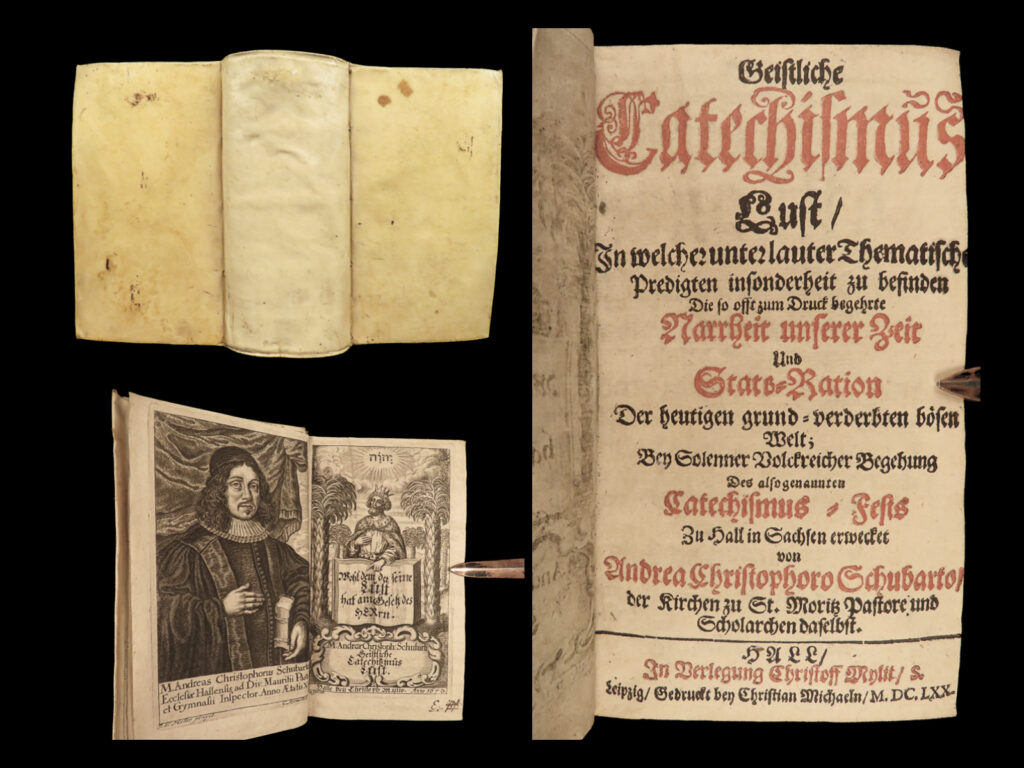 M. Andreas Christophorus Schubart
Ecclesiæ Hallensis ad Div. Mauritii
et Gymnasii Inspector Anno Ætatis
יהוה
Wohl dem der seine
Lust
hat am Gesetz des
HErrn.
M. Andreæ Christoph: Schubarti
Geistliche
Catechismus
Lust.
Geistliche
Catechismũs
Lust /
In welcher unter lauter Thematische
Predigten insonderheit zu befinden
Die so offt zum Druck begehrte
Narrheit unserer Zeit
Und
Stats-Ration
Der heutigen grund-verderbten bösen
Welt;
Bey Solenner Volckreicher Begehung
Des also genannten
Catechismus - Fests
Zu Hall in Sachsen erwecket
von
Andrea Christophoro Schubarto /
der Kirchen zu St. Moritz Pastore und
Scholarchen daselbst.
HALL /
In Verlegung Christoff Mylii /
Leipzig / Gedruckt bey Christian Michaeln / M. DC. LXX.